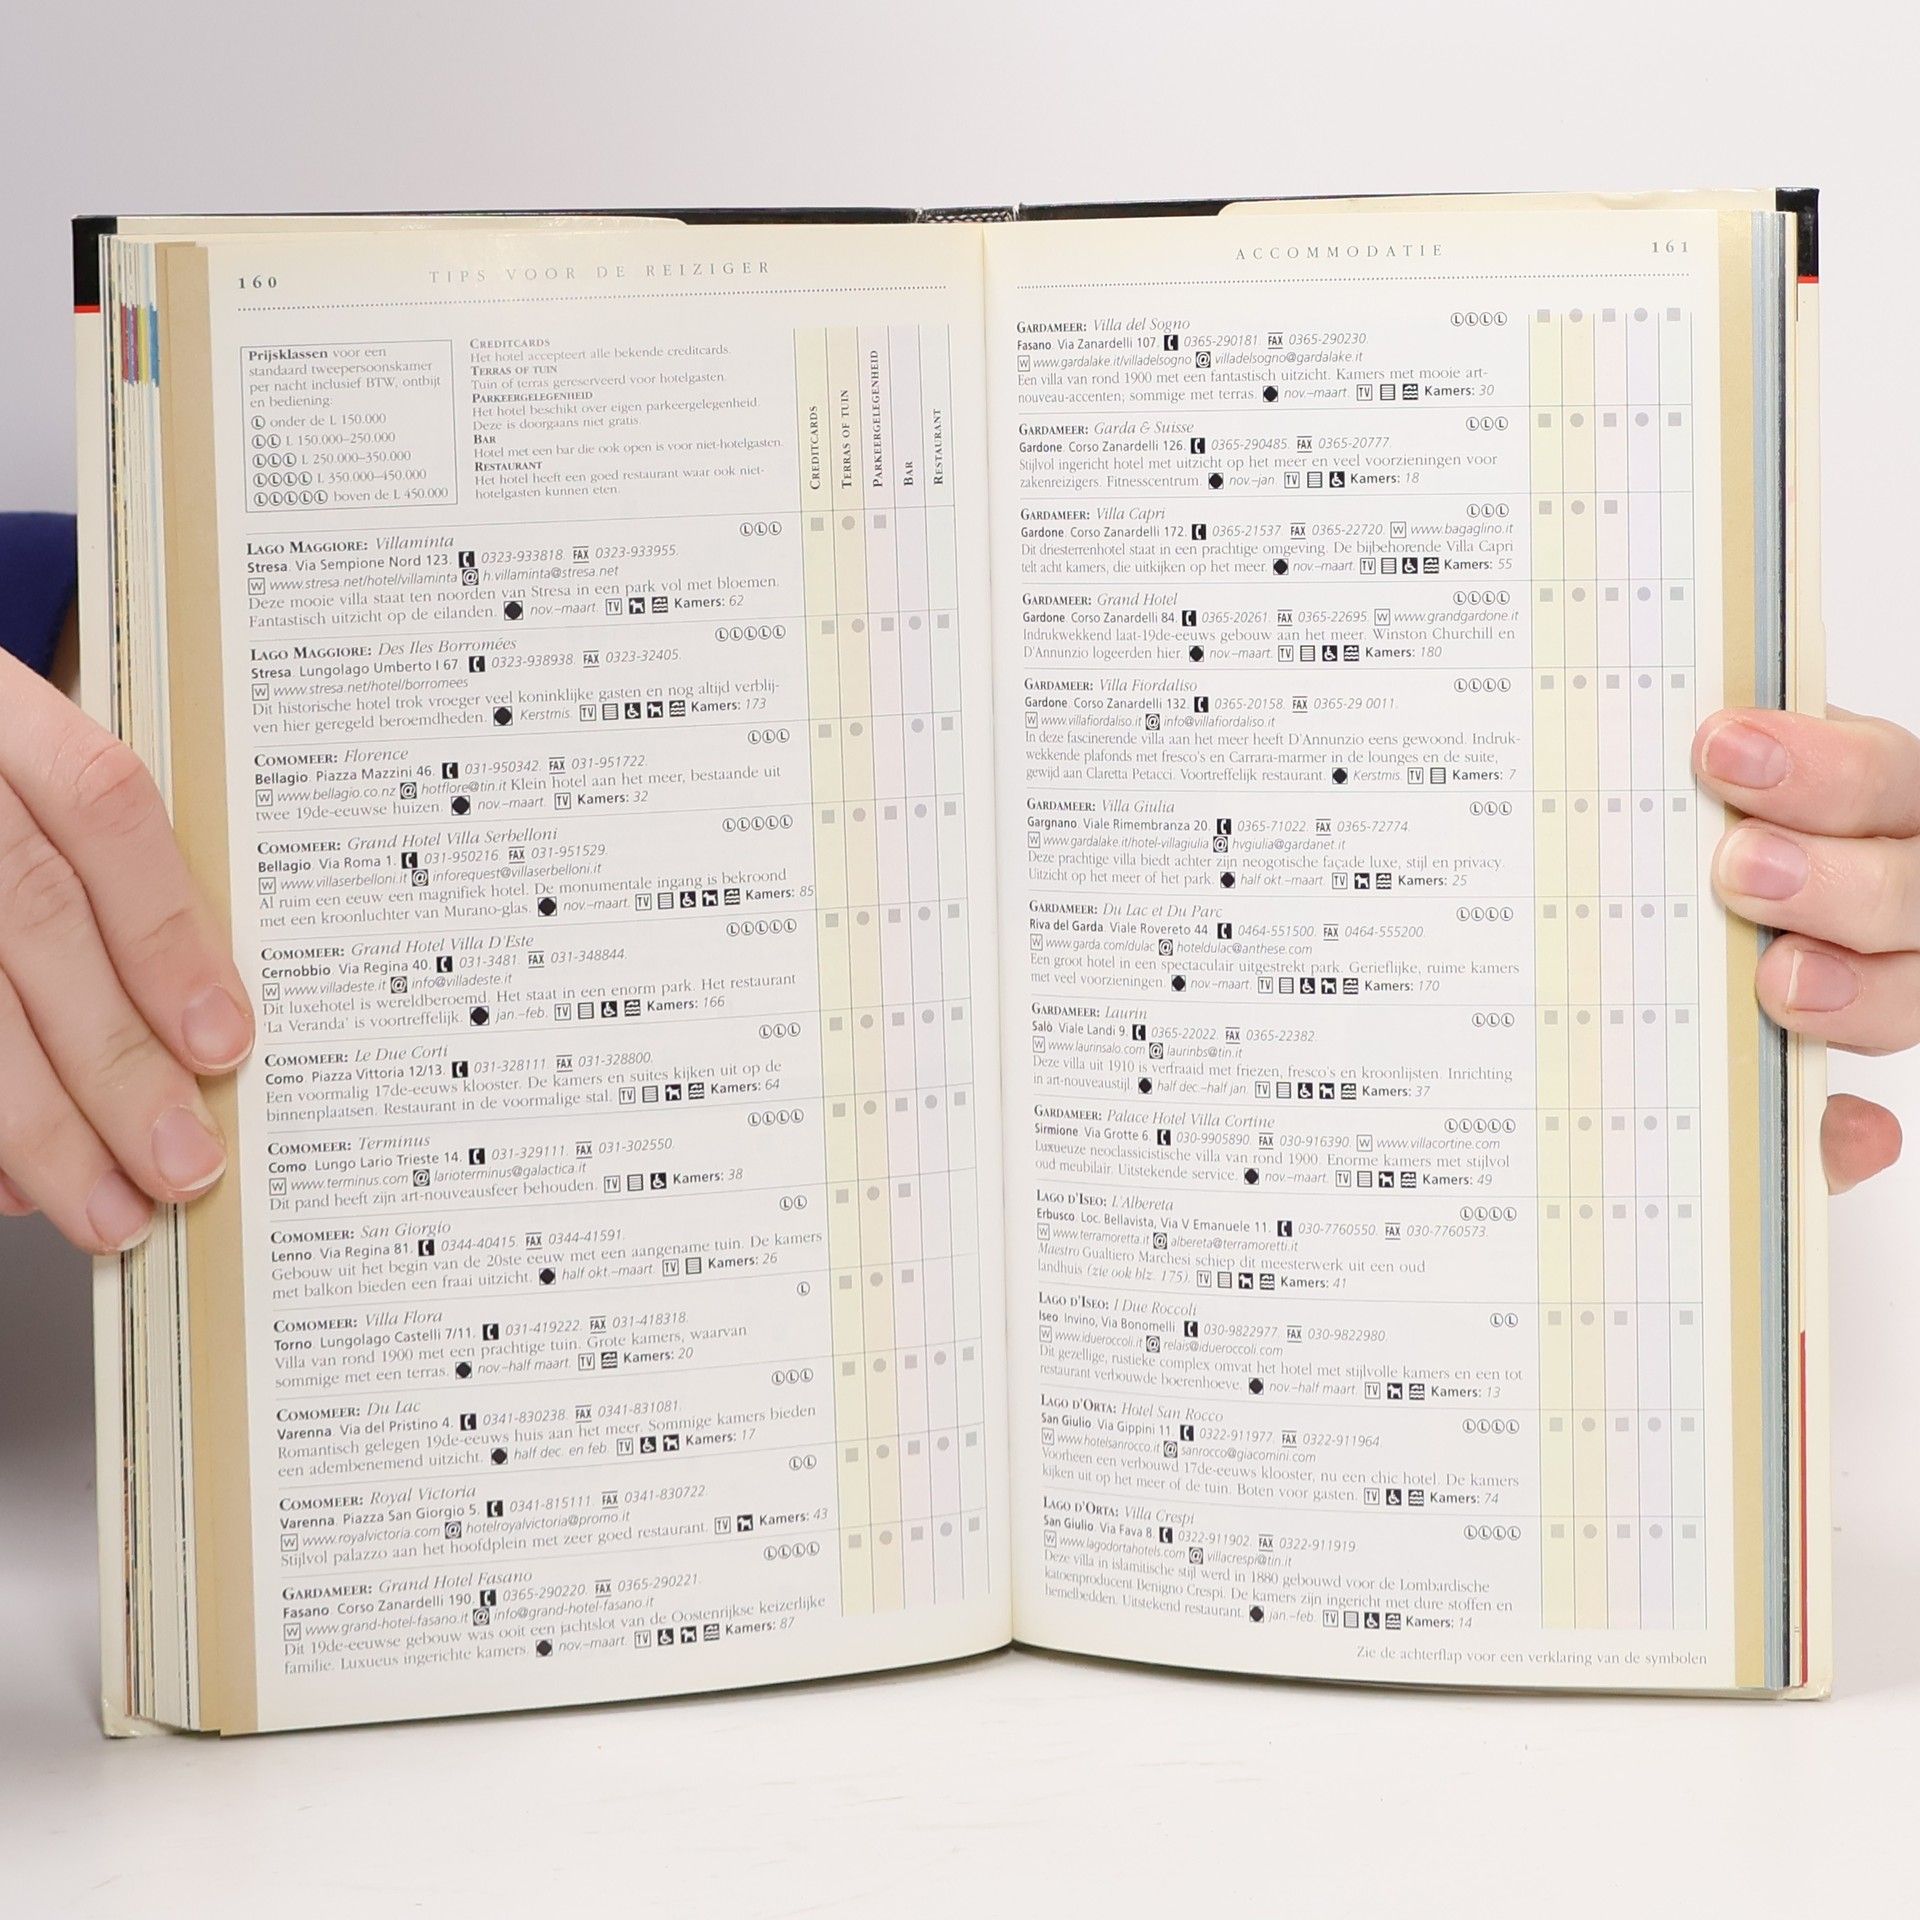 160
TIPS VOOR DE REIZIGER
Prijsklassen voor een
standaard tweepersoonskamer
per nacht inclusief BTW, ontbijt
en bediening:
Ⓛ onder de L 150.000
ⓁⓁ L 150.000–250.000
ⓁⓁⓁ L 250.000–350.000
ⓁⓁⓁⓁ L 350.000–450.000
ⓁⓁⓁⓁⓁ boven de L 450.000
CREDITCARDS
Het hotel accepteert alle bekende creditcards.
TERRAS OF TUIN
Tuin of terras gereserveerd voor hotelgasten.
PARKEERGELEGENHEID
Het hotel beschikt over eigen parkeergelegenheid.
Deze is doorgaans niet gratis.
BAR
Hotel met een bar die ook open is voor niet-hotelgasten.
RESTAURANT
Het hotel heeft een goed restaurant waar ook niet-
hotelgasten kunnen eten.
CREDITCARDS
TERRAS OF TUIN
PARKEERGELEGENHEID
BAR
RESTAURANT
LAGO MAGGIORE: Villaminta ⓁⓁⓁ
Stresa. Via Sempione Nord 123. 0323-933818. FAX 0323-933955.
W www.stresa.net/hotel/villaminta @ h.villaminta@stresa.net
Deze mooie villa staat ten noorden van Stresa in een park vol met bloemen.
Fantastisch uitzicht op de eilanden. nov.–maart. TV Kamers: 62
LAGO MAGGIORE: Des Iles Borromées ⓁⓁⓁⓁⓁ
Stresa. Lungolago Umberto I 67. 0323-938938. FAX 0323-32405.
W www.stresa.net/hotel/borromees
Dit historische hotel trok vroeger veel koninklijke gasten en nog altijd verblij-
ven hier geregeld beroemdheden. Kerstmis. TV Kamers: 173
COMOMEER: Florence ⓁⓁⓁ
Bellagio. Piazza Mazzini 46. 031-950342. FAX 031-951722.
W www.bellagio.co.nz @ hotflore@tin.it Klein hotel aan het meer, bestaande uit
twee 19de-eeuwse huizen. nov.–maart. TV Kamers: 32
COMOMEER: Grand Hotel Villa Serbelloni ⓁⓁⓁⓁⓁ
Bellagio. Via Roma 1. 031-950216. FAX 031-951529.
W www.villaserbelloni.it @ inforequest@villaserbelloni.it
Al ruim een eeuw een magnifiek hotel. De monumentale ingang is bekroond
met een kroonluchter van Murano-glas. nov.–maart. TV Kamers: 85
COMOMEER: Grand Hotel Villa D'Este ⓁⓁⓁⓁⓁ
Cernobbio. Via Regina 40. 031-3481. FAX 031-348844.
W www.villadeste.it @ info@villadeste.it
Dit luxehotel is wereldberoemd. Het staat in een enorm park. Het restaurant
'La Veranda' is voortreffelijk. jan.–feb. TV Kamers: 166
COMOMEER: Le Due Corti ⓁⓁⓁ
Como. Piazza Vittoria 12/13. 031-328111. FAX 031-328800.
Een voormalig 17de-eeuws klooster. De kamers en suites kijken uit op de
binnenplaatsen. Restaurant in de voormalige stal. TV Kamers: 64
COMOMEER: Terminus ⓁⓁⓁⓁ
Como. Lungo Lario Trieste 14. 031-329111. FAX 031-302550.
W www.terminus.com @ larioterminus@galactica.it
Dit pand heeft zijn art-nouveausfeer behouden. TV Kamers: 38
COMOMEER: San Giorgio ⓁⓁ
Lenno. Via Regina 81. 0344-40415. FAX 0344-41591.
Gebouw uit het begin van de 20ste eeuw met een aangename tuin. De kamers
met balkon bieden een fraai uitzicht. half okt.–maart. TV Kamers: 26
COMOMEER: Villa Flora Ⓛ
Torno. Lungolago Castelli 7/11. 031-419222. FAX 031-418318.
Villa van rond 1900 met een prachtige tuin. Grote kamers, waarvan
sommige met een terras. nov.–half maart. TV Kamers: 20
COMOMEER: Du Lac ⓁⓁⓁ
Varenna. Via del Pristino 4. 0341-830238. FAX 0341-831081.
Romantisch gelegen 19de-eeuws huis aan het meer. Sommige kamers bieden
een adembenemend uitzicht. half dec. en feb. TV Kamers: 17
COMOMEER: Royal Victoria ⓁⓁ
Varenna. Piazza San Giorgio 5. 0341-815111. FAX 0341-830722.
W www.royalvictoria.com @ hotelroyalvictoria@promo.it
Stijlvol palazzo aan het hoofdplein met zeer goed restaurant. TV Kamers: 43
GARDAMEER: Grand Hotel Fasano ⓁⓁⓁⓁ
Fasano. Corso Zanardelli 190. 0365-290220. FAX 0365-290221.
W www.grand-hotel-fasano.it @ info@grand-hotel-fasano.it
Dit 19de-eeuwse gebouw was ooit een jachtslot van de Oostenrijkse keizerlijke
familie. Luxueus ingerichte kamers. nov.–maart. TV Kamers: 87
ACCOMMODATIE
161
GARDAMEER: Villa del Sogno ⓁⓁⓁⓁ
Fasano. Via Zanardelli 107. 0365-290181. FAX 0365-290230.
W www.gardalake.it/villadelsogno @ villadelsogno@gardalake.it
Een villa van rond 1900 met een fantastisch uitzicht. Kamers met mooie art-
nouveau-accenten; sommige met terras. nov.–maart. TV Kamers: 30
GARDAMEER: Garda & Suisse ⓁⓁⓁ
Gardone. Corso Zanardelli 126. 0365-290485. FAX 0365-20777.
Stijlvol ingericht hotel met uitzicht op het meer en veel voorzieningen voor
zakenreizigers. Fitnesscentrum. nov.–jan. TV Kamers: 18
GARDAMEER: Villa Capri ⓁⓁⓁ
Gardone. Corso Zanardelli 172. 0365-21537. FAX 0365-22720. W www.bagaglino.it
Dit driesterrenhotel staat in een prachtige omgeving. De bijbehorende Villa Capri
telt acht kamers, die uitkijken op het meer. nov.–maart. TV Kamers: 55
GARDAMEER: Grand Hotel ⓁⓁⓁⓁ
Gardone. Corso Zanardelli 84. 0365-20261. FAX 0365-22695. W www.grandgardone.it
Indrukwekkend laat-19de-eeuws gebouw aan het meer. Winston Churchill en
D'Annunzio logeerden hier. nov.–maart. TV Kamers: 180
GARDAMEER: Villa Fiordaliso ⓁⓁⓁⓁ
Gardone. Corso Zanardelli 132. 0365-20158. FAX 0365-29 0011.
W www.villafiordaliso.it @ info@villafiordaliso.it
In deze fascinerende villa aan het meer heeft D'Annunzio eens gewoond. Indruk-
wekkende plafonds met fresco's en Carrara-marmer in de lounges en de suite,
gewijd aan Claretta Petacci. Voortreffelijk restaurant. Kerstmis. TV Kamers: 7
GARDAMEER: Villa Giulia ⓁⓁⓁ
Gargnano. Viale Rimembranza 20. 0365-71022. FAX 0365-72774.
W www.gardalake.it/hotel-villagiulia @ hvgiulia@gardanet.it
Deze prachtige villa biedt achter zijn neogotische façade luxe, stijl en privacy.
Uitzicht op het meer of het park. half okt.–maart. TV Kamers: 25
GARDAMEER: Du Lac et Du Parc ⓁⓁⓁⓁ
Riva del Garda. Viale Rovereto 44. 0464-551500. FAX 0464-555200.
W www.garda.com/dulac @ hoteldulac@anthese.com
Een groot hotel in een spectaculair uitgestrekt park. Gerieflijke, ruime kamers
met veel voorzieningen. nov–maart. TV Kamers: 170
GARDAMEER: Laurin ⓁⓁⓁ
Salò. Viale Landi 9. 0365-22022. FAX 0365-22382.
W www.laurinsalo.com @ laurinbs@tin.it
Deze villa uit 1910 is verfraaid met friezen, fresco's en kroonlijsten. Inrichting
in art-nouveaustijl. half dec.–half jan. TV Kamers: 37
GARDAMEER: Palace Hotel Villa Cortine ⓁⓁⓁⓁⓁ
Sirmione. Via Grotte 6. 030-9905890. FAX 030-916390. W www.villacortine.com
Luxueuze neoclassicistische villa van rond 1900. Enorme kamers met stijlvol
oud meubilair. Uitstekende service. nov.–maart. TV Kamers: 49
LAGO D'ISEO: L'Albereta ⓁⓁⓁⓁ
Erbusco. Loc. Bellavista, Via V Emanuele 11. 030-7760550. FAX 030-7760573.
W www.terramoretta.it @ albereta@terramoretti.it
Maestro Gualtiero Marchesi schiep dit meesterwerk uit een oud
landhuis (zie ook blz. 175). TV Kamers: 41
LAGO D'ISEO: I Due Roccoli ⓁⓁ
Iseo. Invino, Via Bonomelli. 030-9822977. FAX 030-9822980.
W www.idueroccoli.it @ relais@idueroccoli.com
Dit gezellige, rustieke complex omvat het hotel met stijlvolle kamers en een tot
restaurant verbouwde boerenhoeve. nov.–half maart. TV Kamers: 13
LAGO D'ORTA: Hotel San Rocco ⓁⓁⓁⓁ
San Giulio. Via Gippini 11. 0322-911977. FAX 0322-911964.
W www.hotelsanrocco.it @ sanrocco@giacomini.com
Voorheen een verbouwd 17de-eeuws klooster, nu een chic hotel. De kamers
kijken uit op het meer of de tuin. Boten voor gasten. TV Kamers: 74
LAGO D'ORTA: Villa Crespi ⓁⓁⓁⓁ
San Giulio. Via Fava 8. 0322-911902. FAX 0322-911919.
W www.lagodortahotels.com @ villacrespi@tin.it
Deze villa in islamitische stijl werd in 1880 gebouwd voor de Lombardische
katoenproducent Benigno Crespi. De kamers zijn ingericht met dure stoffen en
hemelbedden. Uitstekend restaurant. jan.–feb. TV Kamers: 14
Zie de achterflap voor een verklaring van de symbolen